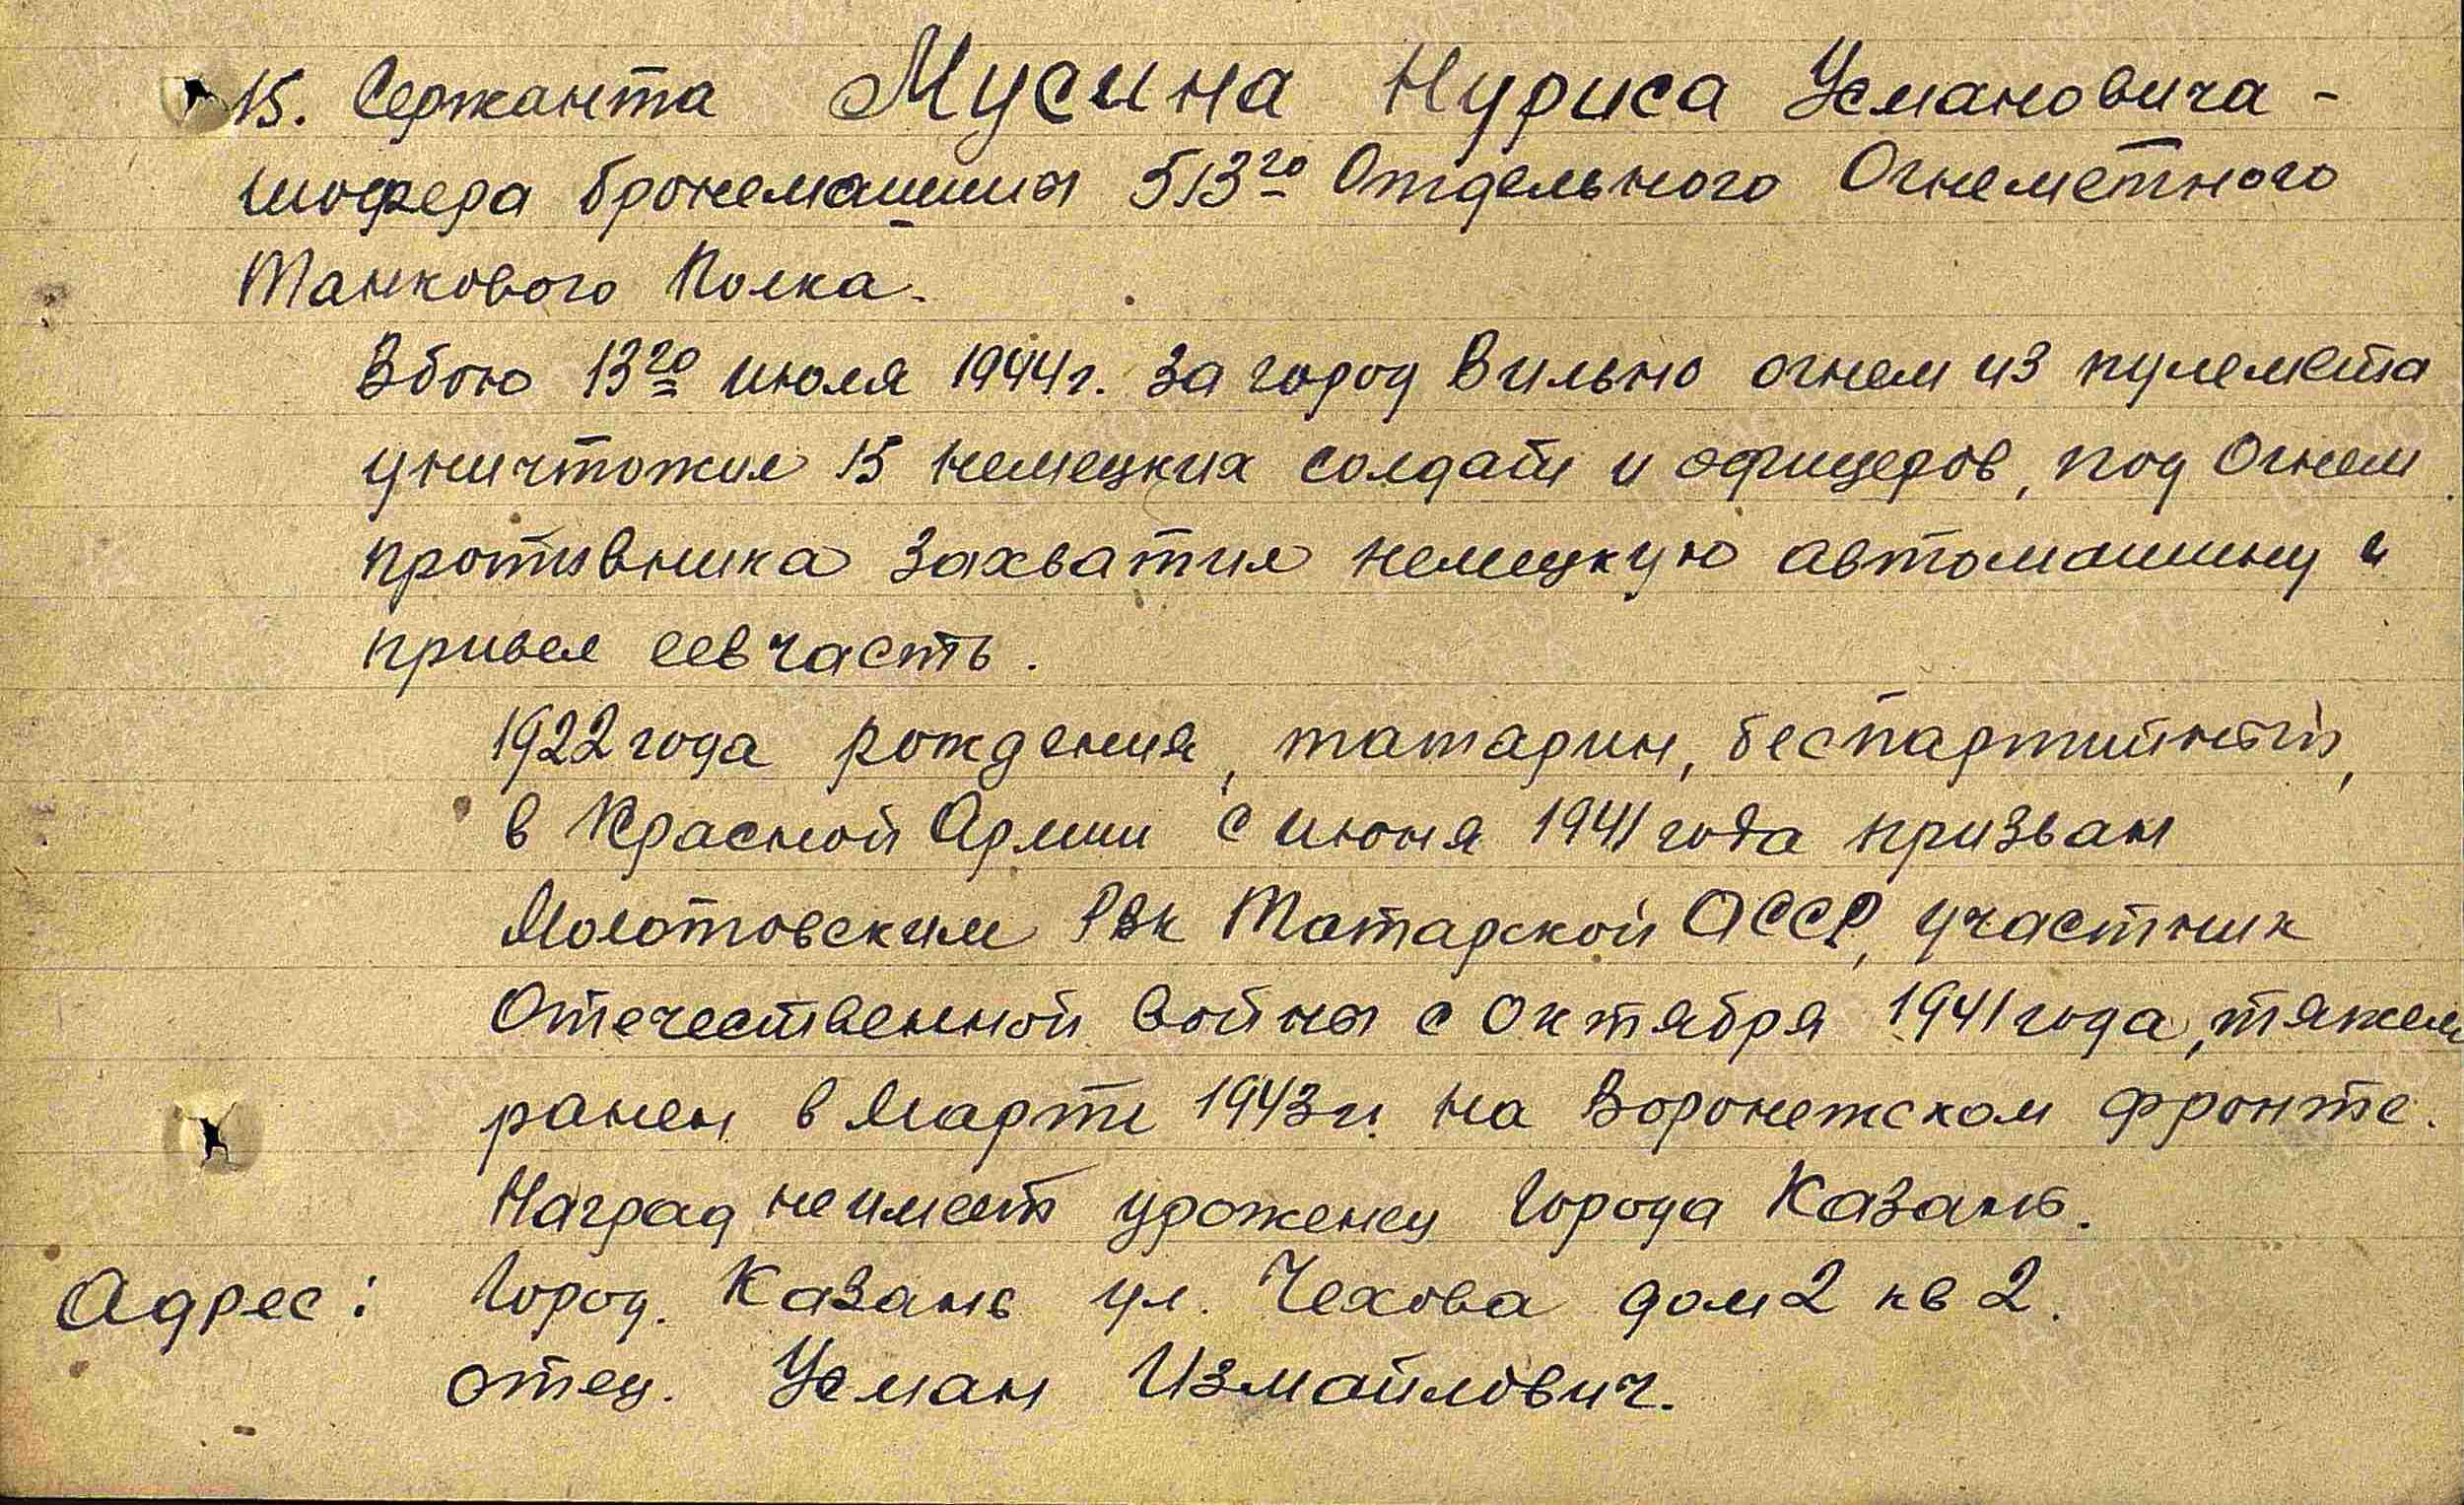 15. Сержанта Мусина Нуриса Усмановича -
шофера бронемашины 513го Отдельного Огнеметного
Танкового Полка.
В бою 13го июля 1944г. за город Вильно огнем из пулемета
уничтожил 15 немецких солдат и офицеров, под огнем
противника захватил немецкую автомашину и
привел ее в часть.
1922 года рождения, татарин, беспартийный,
в Красной Армии с июня 1941 года призван
Молотовским Рвк Татарской АССР, участник
Отечественной войны с октября 1941 года, тяжел
ранен в Марте 1943 г. на Воронежском фронте.
Наград не имеет уроженец Города Казань.
Адрес: Город. Казань ул. Чехова дом 2 кв 2.
отец. Усман Измайлович.